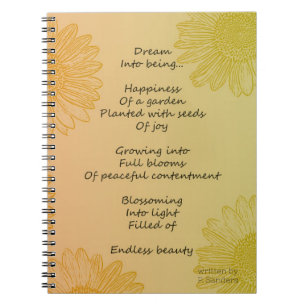 Dream
Into being...
Happiness
Of a garden
Planted with seeds
Of joy
Growing into
Full blooms
Of peaceful contentment
Blossoming
Into light
Filled of
Endless beauty
written by
Sanders